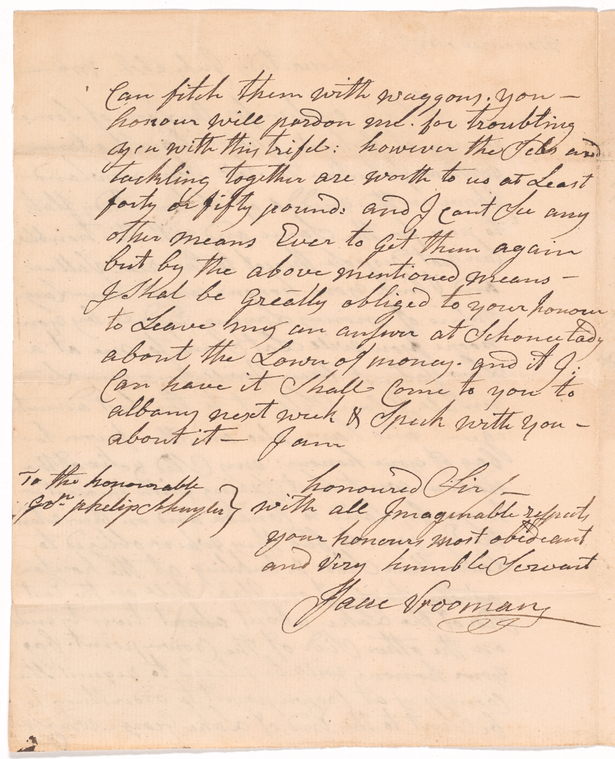 Can fitch them with waggons. you –
honour will pardon me. for troubling
you with this trifel: however the and
tackling together are worth to us at Least
forty or fifty pound: and I cant See any
other means Ever to get them again
but by the above mentioned means –
I Shal be greatly obliged to your honour
to Leave my an answer at Schonectady
about the Lown of money. and if I:
Can have it Shall Come to you to
albany next week & Speek with you –
about it – I am
honoured Sir/ –
To the honourable
phelip Schuyler }
with all Imagenable respects
your honours most obedeant
and very humble Servant
Isaac Vrooman